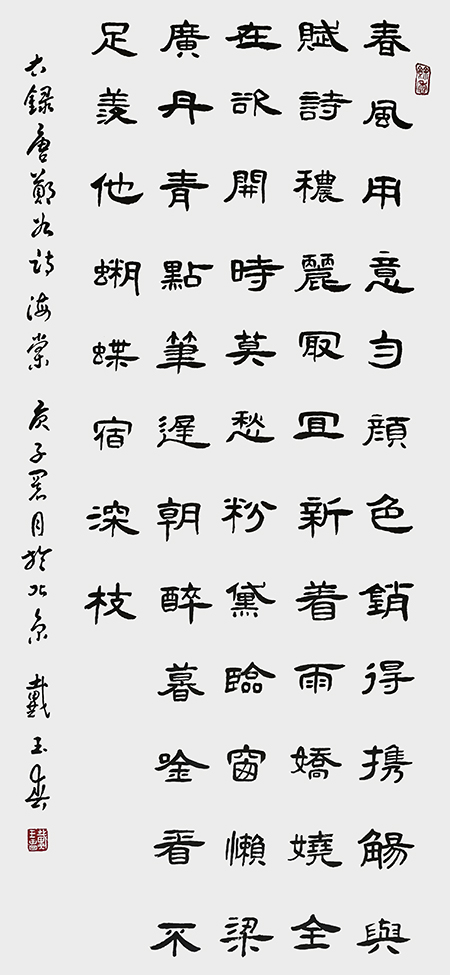 春風用意勻顔色銷得携觴與
賦詩穠麗冣冝新着雨嬌嬈全
在欲開時莫愁粉黛臨窗懶梁
廣丹青點筆遲朝醉暮吟看不
足羨他蝴蝶宿深枝
右錄唐鄭谷詩海棠 庚子暑月於北京 戴玉春